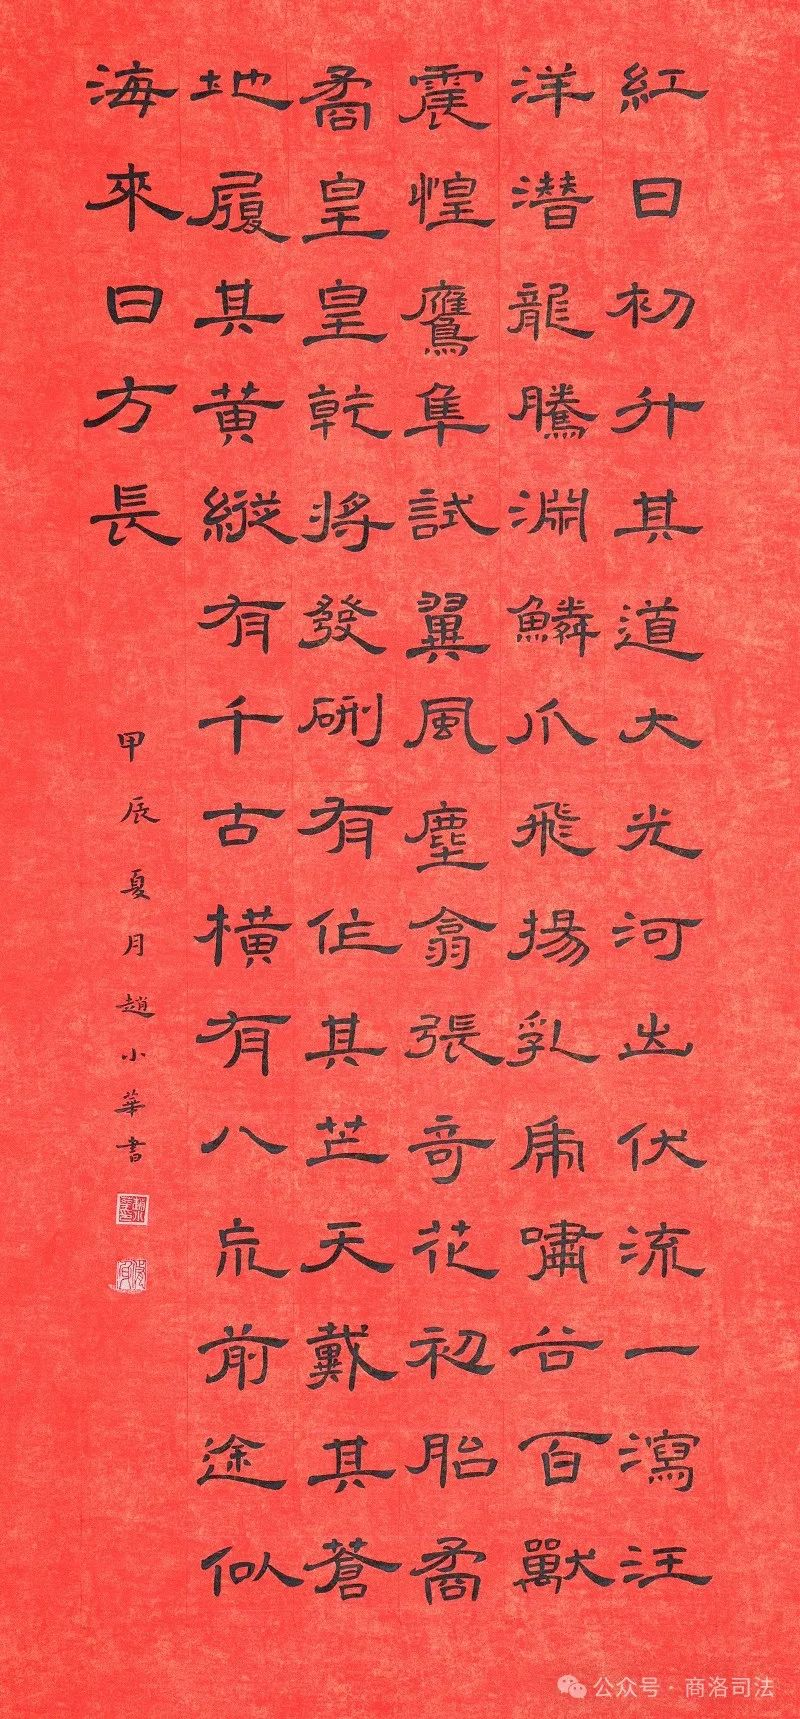 紅日初升其道大光河出伏流一瀉汪
洋潜龍騰淵鱗爪飛揚乳虎嘯谷百獸
震惶鷹隼試翼風塵翕張奇花初胎矞
矞皇皇乾將發硎有作其芒天戴其蒼
地履其黄縱有千古橫有八荒前途似
海來日方長
甲辰夏月趙小華書
公众号·商洛司法